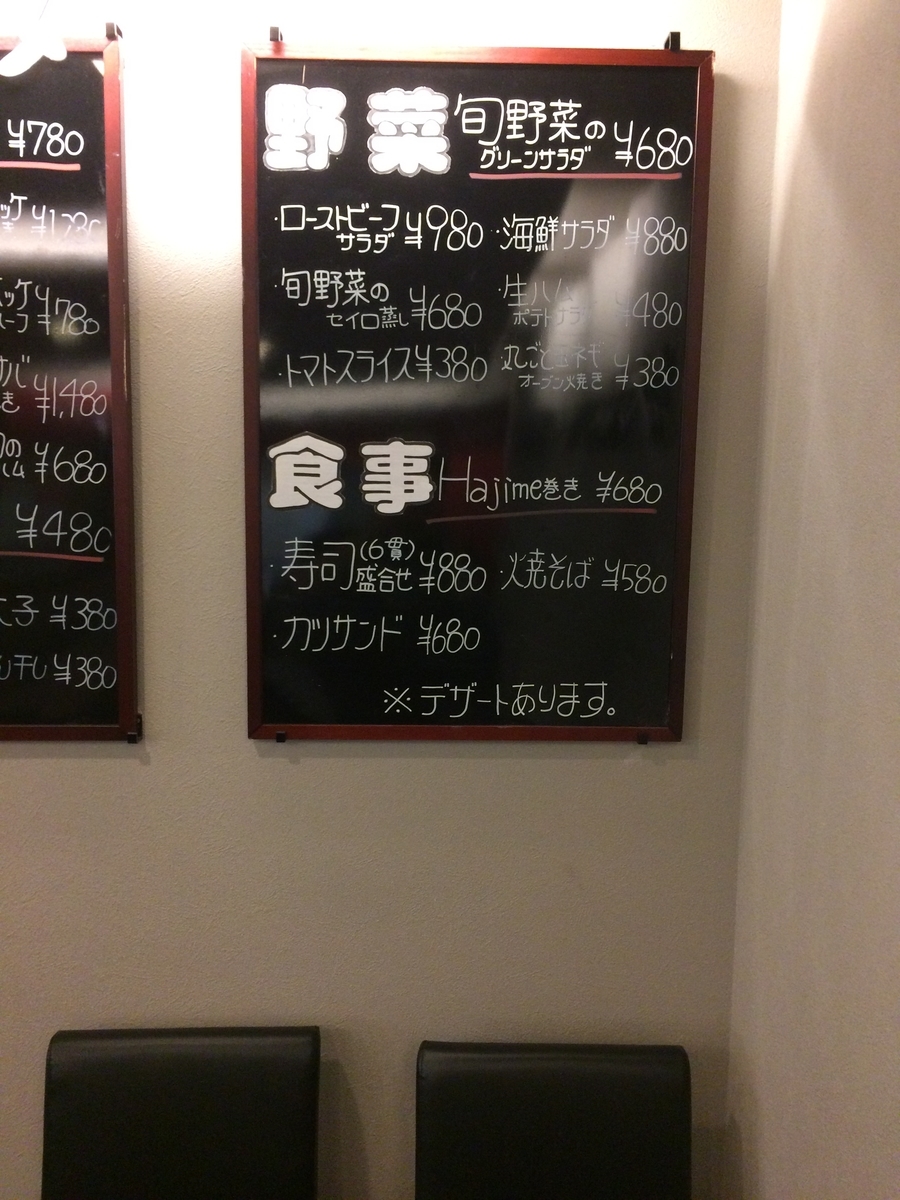 ¥780
ッケ
¥1,230
ホッケ
ープ ¥780
サバ
き ¥1,480
の
ハム ¥680
¥480
¥380
干し ¥380
野菜 旬野菜の
グリーンサラダ ¥680
・ローストビーフ
サラダ ¥980
・海鮮サラダ ¥880
・旬野菜の
セイロ蒸し ¥680
・生ハム
ポテトサラダ ¥480
・トマトスライス ¥380
・丸ごと玉ネギ
オーブン焼き ¥380
食事 Hajime巻き ¥680
・寿司(6貫)
盛合せ ¥880
・火焼そば ¥580
・カツサンド ¥680
※デザートあります。